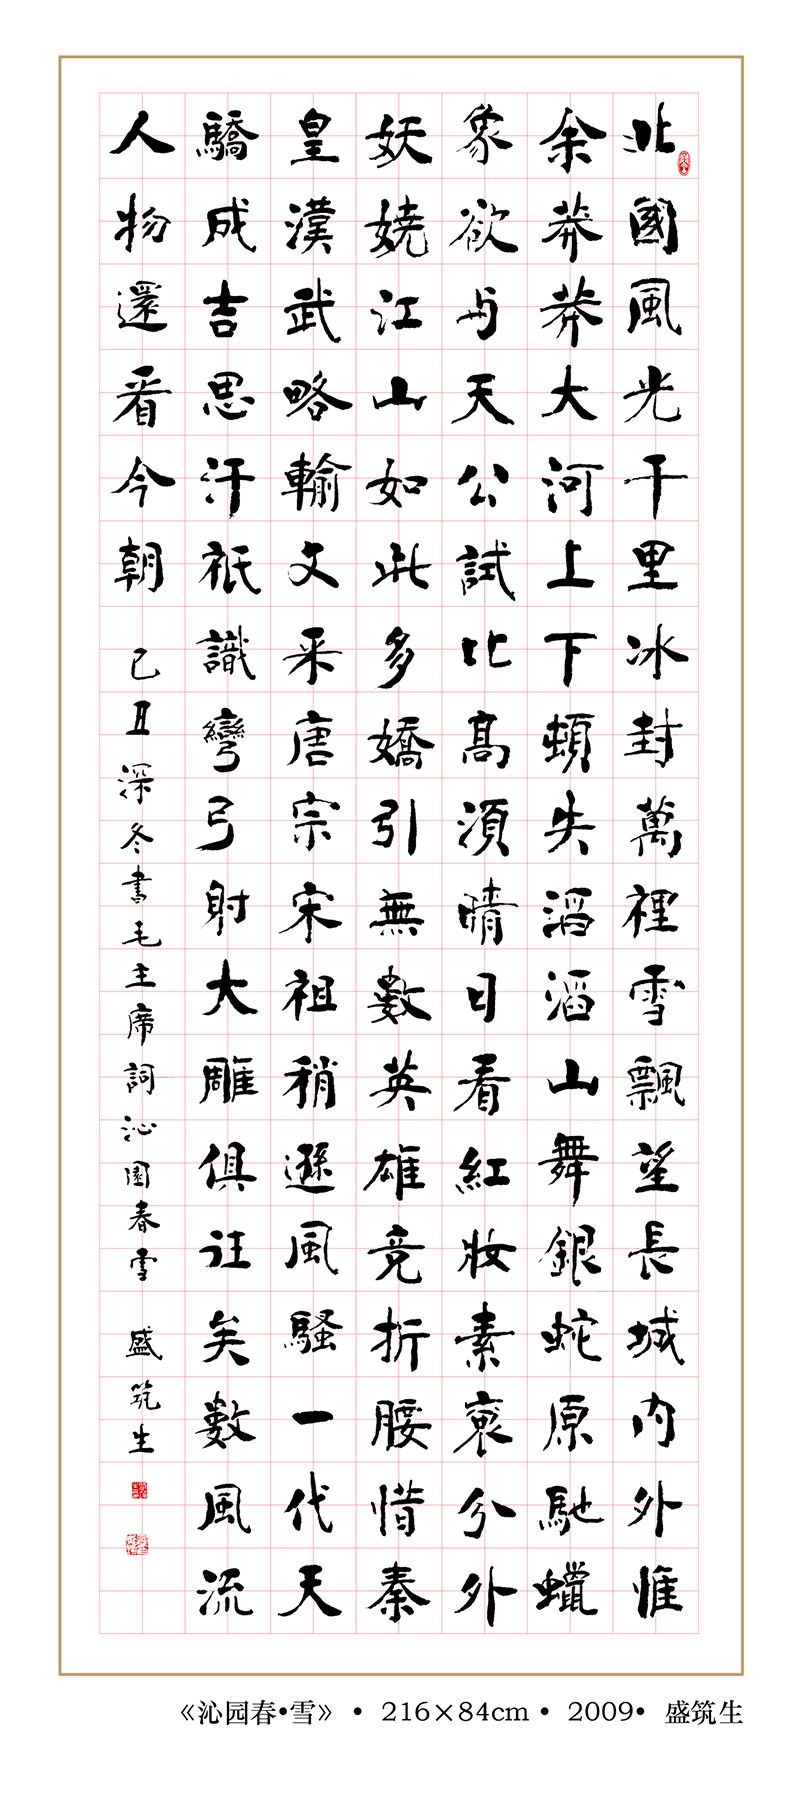 北國風光千里冰封萬裡雪飄望長城内外惟
余莽莽大河上下頓失滔滔山舞銀蛇原馳蠟
象欲与天公試比高須晴日看紅妝素裹分外
妖娆江山如此多嬌引無數英雄竞折腰惜秦
皇漢武略輸文采唐宗宋祖稍遜風騷一代天
驕成吉思汗祇識彎弓射大雕俱往矣數風流
人物還看今朝 己丑深冬書毛主席詞沁園春雪 盛筑生
《沁园春•雪》 • 216×84cm • 2009• 盛筑生